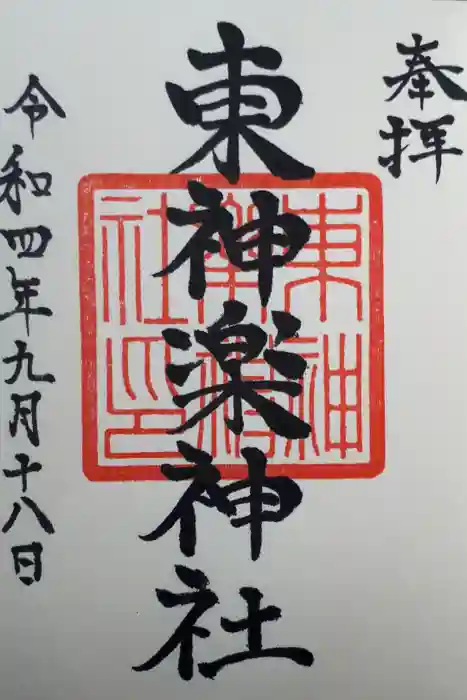 奉拝
東神楽神社
東神
楽神
社印
令和四年九月十八日